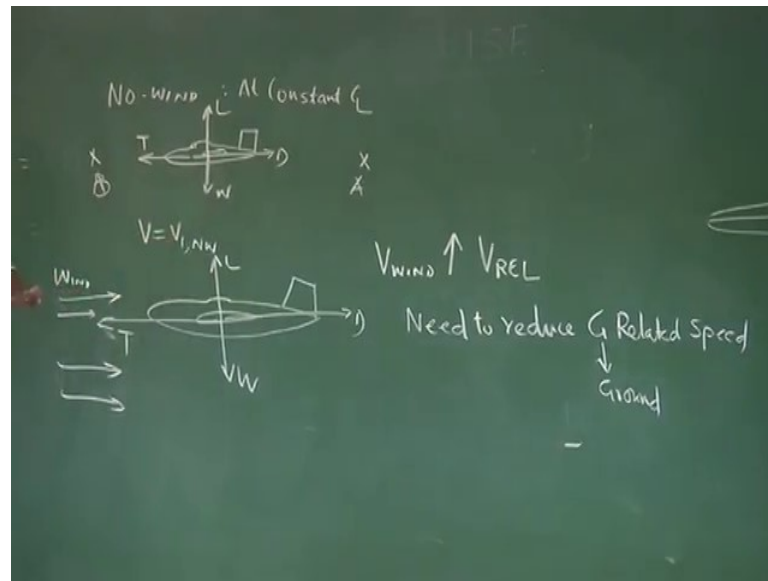 NO-WIND : At Constant CL
L
T
D
W
X
X
B
A
V=V1,NW
L
WIND
VWIND ↑ VREL
T
D
Need to reduce G Related Speed
↓
W
Ground